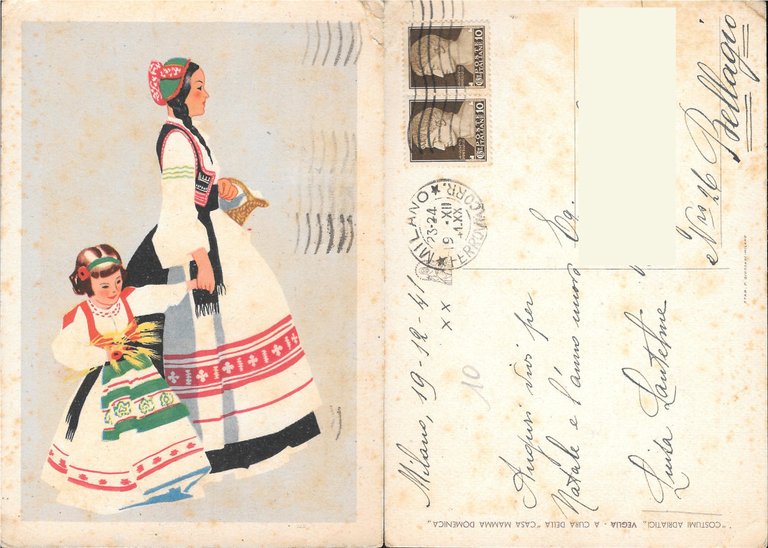 Milano, 19-12-41
XX
Auguri vivi per
Natale e l'anno nuovo
Luisa
Eg.
Bellagio
10
10
10
MILANO
23-24
19 .XII
41.XX
FERROVIA CORR.
"COSTUMI ADRIATICI„ VEGLIA - A CURA DELLA "CASA MAMMA DOMENICA„
MILANO